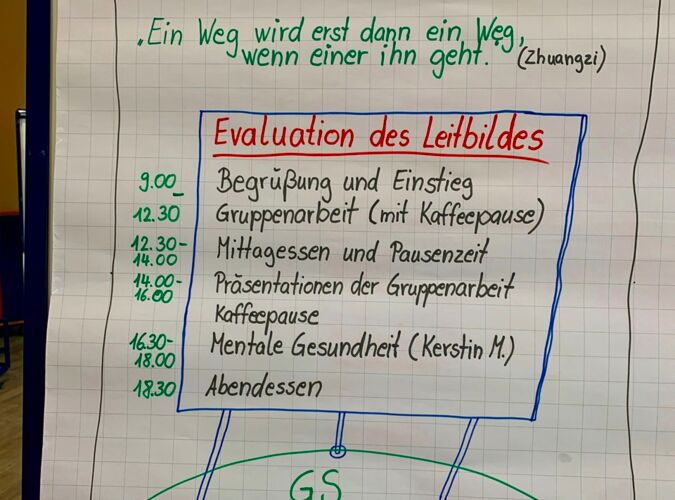 „Ein Weg wird erst dann ein Weg,
wenn einer ihn geht." (Zhuangzi)
Evaluation des Leitbildes
9.00 - Begrüßung und Einstieg
12.30 Gruppenarbeit (mit Kaffeepause)
12.30- 14.00 Mittagessen und Pausenzeit
14.00- 16.00 Präsentationen der Gruppenarbeit
Kaffeepause
16.30- 18.00 Mentale Gesundheit (Kerstin M.)
18.30 Abendessen
GS